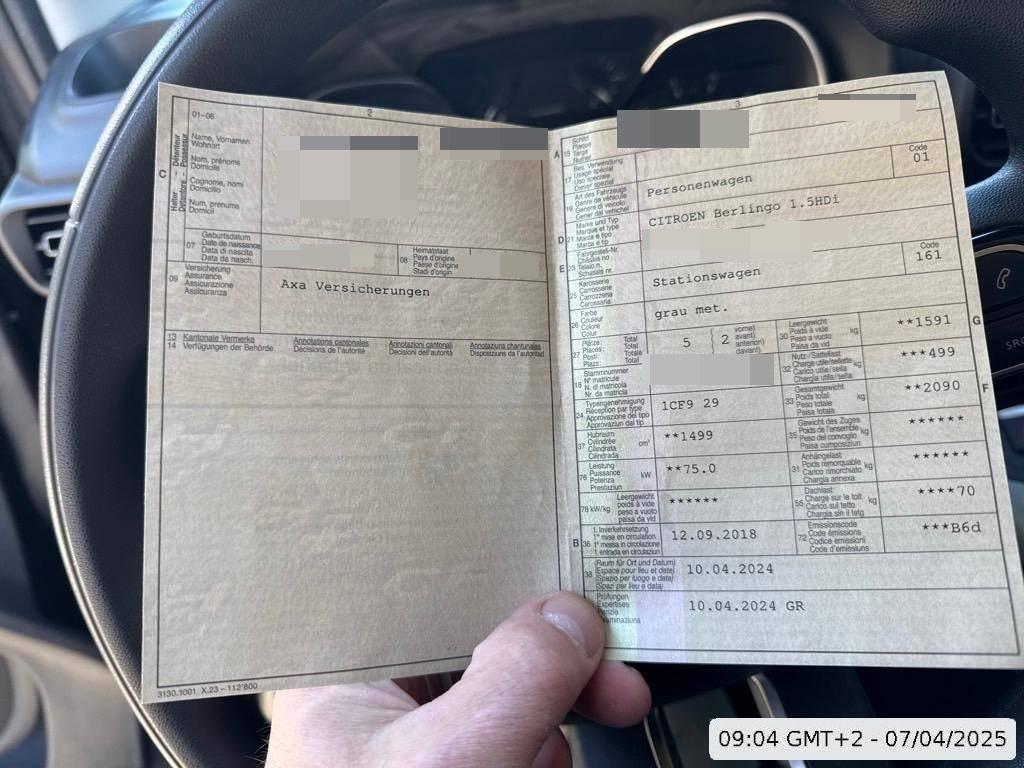 2
01-06
C
Halter Détenteur
Detentore - Possessur
Name, Vornamen
Wohnort
Nom, prénoms
Domicile
Cognome, nomi
Domicilio
Num, prenums
Domicil
07
Geburtsdatum
Date de naissance
Data di nascita
Data da nasch.
08
Heimatstaat
Pays d'origine
Paese d'origine
Stadi d'origin
09
Versicherung
Assurance
Assicurazione
Assicuranza
Axa Versicherungen
13 Kantonale Vermerke
Annotations cantonales
Annotazioni cantonali
Annotaziuns chantunalas
14 Verfügungen der Behörde
Décisions de l'autorité
Decisioni dell'autorità
Disposiziuns da l'autoritad
3130.1001 X.23 – 112'800
3
A
15
Schild
Plaque
Targa
Numer
17
Bes. Verwendung
Usage spécial
Uso speciale
Diever spezial
19
Art des Fahrzeugs
Genre de véhicule
Genere di veicolo
Gener dal vehichel
Personenwagen
Code
01
D
21
Marke und Typ
Marque et type
Marca e tipo
Marca e tip
CITROEN Berlingo 1.5HDi
E
23
Fahrgestell-Nr.
Châssis no
Telaio n.
Schassis nr.
25
Karosserie
Carrosserie
Carrozzeria
Carossaria
Stationswagen
Code
161
26
Farbe
Couleur
Colore
Colur
grau met.
27
Plätze: Total
Places: Total
Posti: Totale
Plazs: Total
5
2
vorne)
avant)
anteriori)
davant)
30
Leergewicht
Poids à vide
Peso a vuoto
Paisa da vid
kg
**1591
G
18
Stammnummer
N° matricule
N. di matricola
Nr. da matricla
32
Nutz-/Sattellast
Charge utile/sellette
Carico utile/sella
Chargia utila/sella
kg
***499
24
Typengenehmigung
Réception par type
Approvazione del tipo
Approvaziun dal tip
1CF9 29
33
Gesamtgewicht
Poids total
Peso totale
Paisa totala
kg
**2090
F
37
Hubraum
Cylindrée
Cilindrata
Cilindrada
cm³
**1499
35
Gewicht des Zuges
Poids de l'ensemble
Peso del convoglio
Paisa cumposiziun
kg
******
76
Leistung
Puissance
Potenza
Prestaziun
kW
**75.0
31
Anhängelast
Poids remorquable
Carico rimorchiato
Chargia annexa
kg
******
78 kW/kg
Leergewicht
poids à vide
peso a vuoto
paisa da vid
******
55
Dachlast
Charge sur le toit
Carico sul tetto
Chargia sin il tetg
kg
****70
B
36
1. Inverkehrsetzung
1re mise en circulation
1a messa in circolazione
1. entrada en circulaziun
12.09.2018
72
Emissionscode
Code émissions
Codice emissioni
Code d'emissiuns
***B6d
38
(Raum für Ort und Datum)
(Espace pour lieu et date)
(Spazio per luogo e data)
(Spazi per lieu e data)
10.04.2024
Prüfungen
Expertises
10.04.2024 GR
09:04 GMT+2 - 07/04/2025